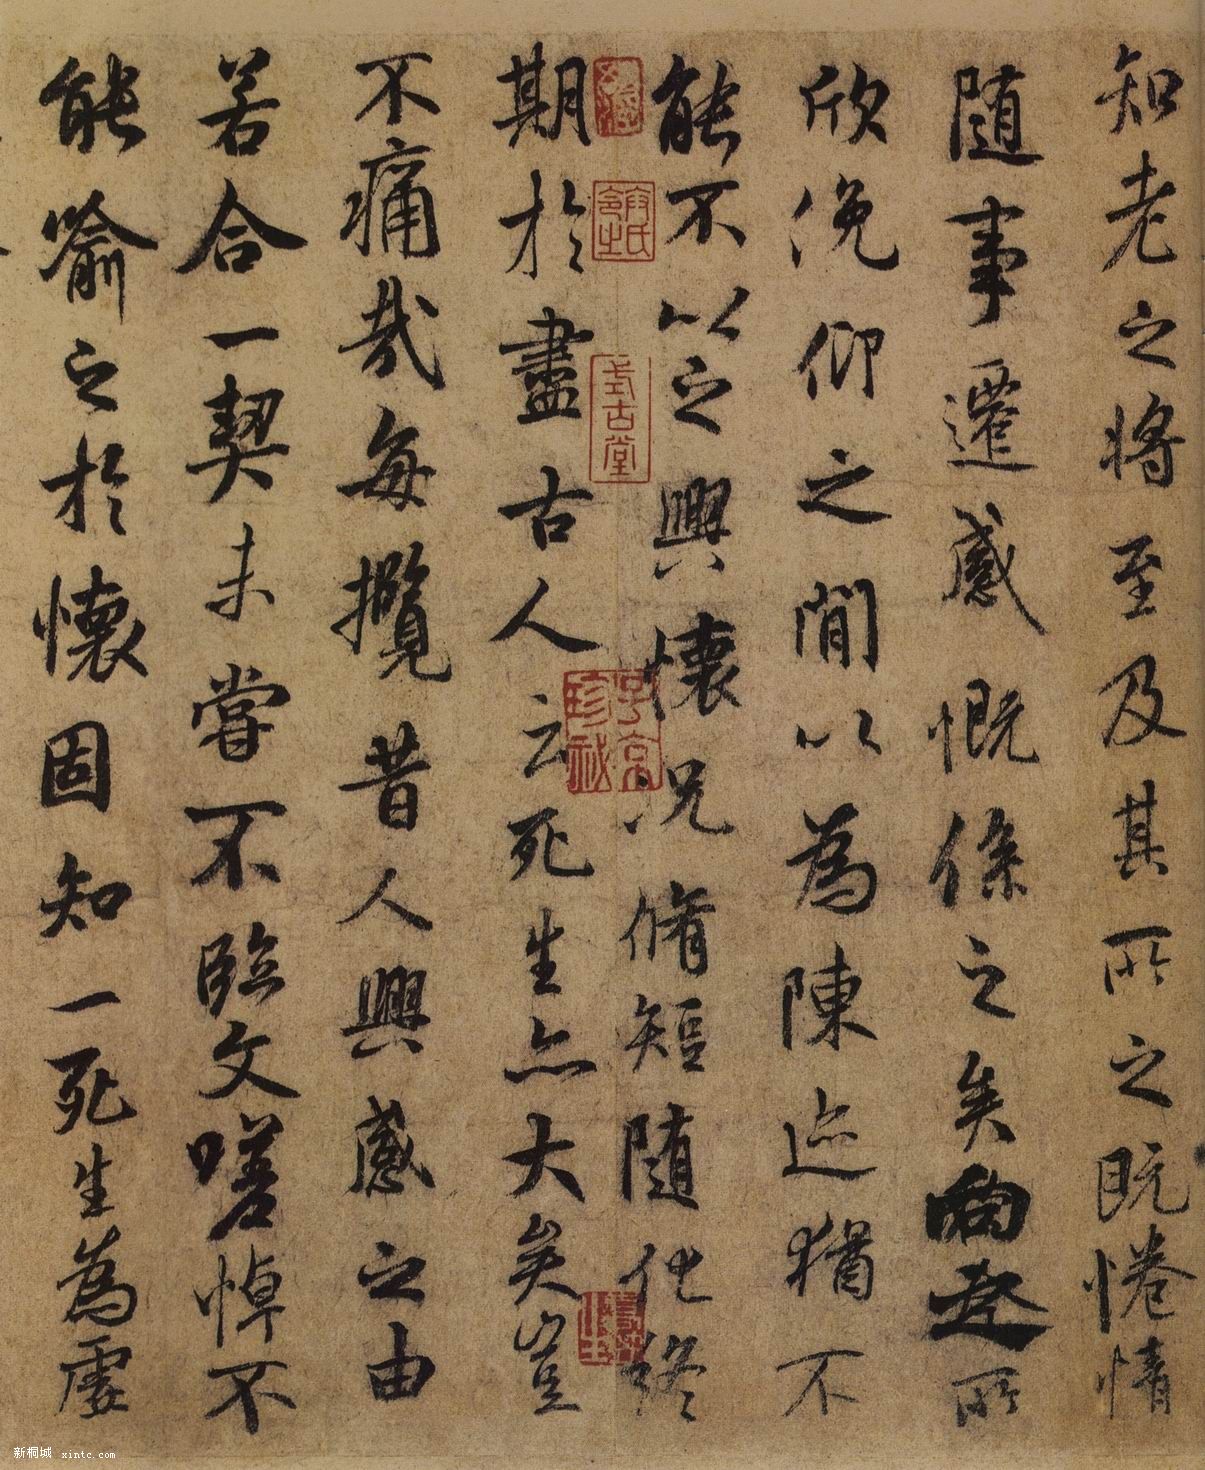 知老之將至及其所之既惓情
隨事遷感慨係之矣向之所
欣俛仰之閒以為陳迹猶不
能不以之興懷況脩短隨化終
期於盡古人云死生亦大矣豈
不痛哉每攬昔人興感之由
若合一契未嘗不臨文嗟悼不
能喻之於懷固知一死生為虛
式古堂
子京珍秘
新桐城 xintc.com